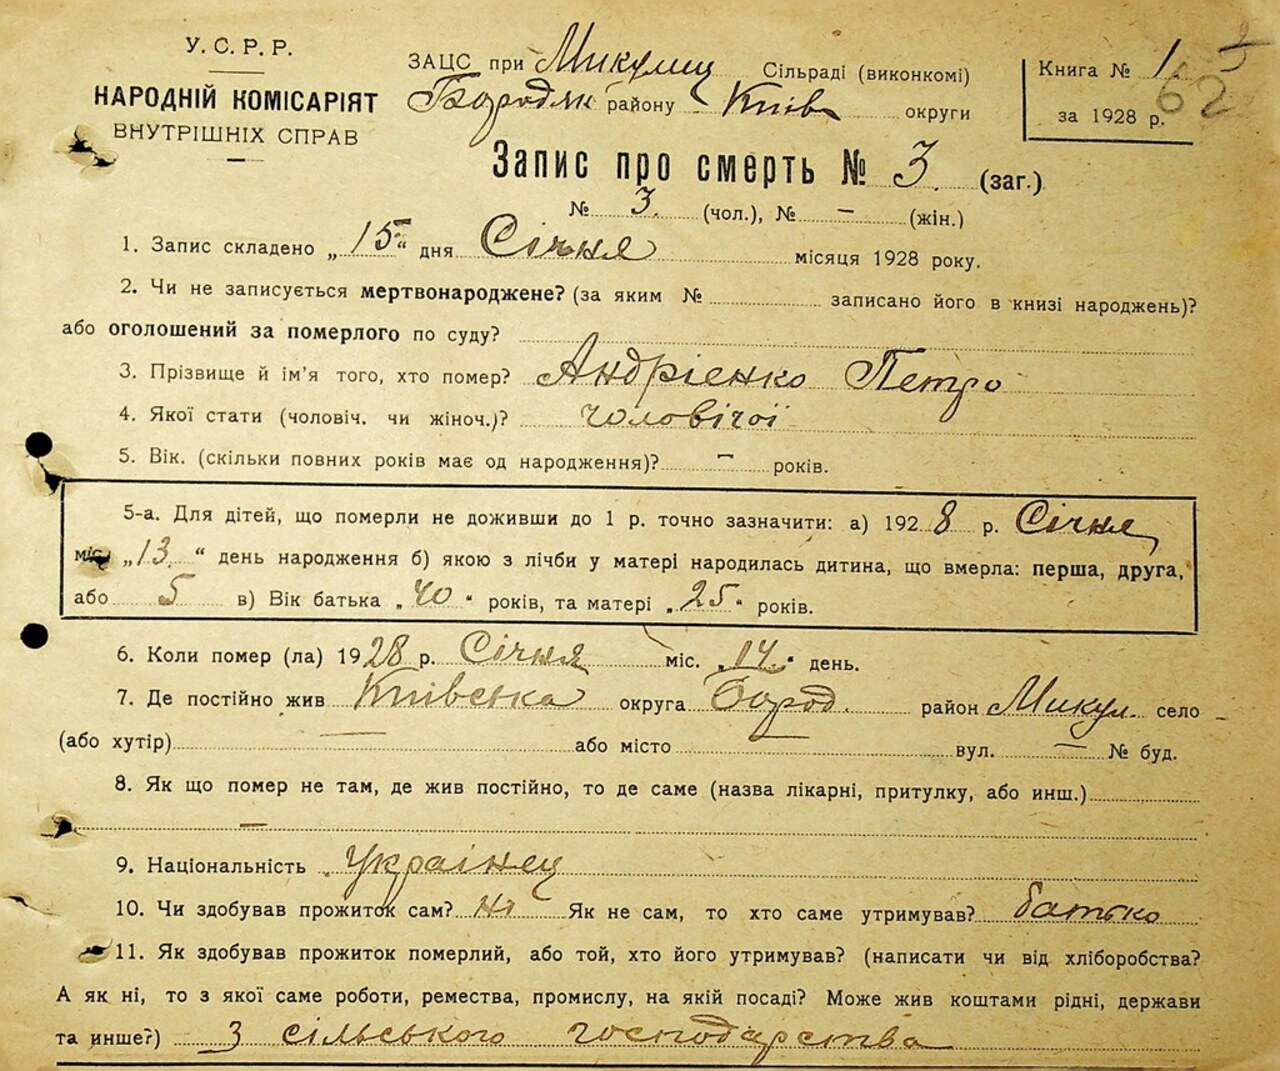 У. С. Р. Р.
НАРОДНІЙ КОМІСАРІЯТ
ВНУТРІШНІХ СПРАВ
ЗАЦС при Микулиц Сільраді (виконкомі)
Бородян району Київ округи
Книга № 1
за 1928 р.
62
Запис про смерть № 3. (заг.)
№ 3. (чол.), № — (жін.)
1. Запис складено „ 15 “ дня Січня місяця 1928 року.
2. Чи не записується мертвонароджене? (за яким № записано його в книзі народжень)?
або оголошений за померлого по суду?
3. Прізвище й ім'я того, хто помер? Андрієнко Петро
4. Якої стати (чоловіч. чи жіноч.)? чоловічої
5. Вік. (скільки повних років має од народження)? — років.
5-а. Для дітей, що померли не доживши до 1 р. точно зазначити: а) 1928 р. Січня
міс. „ 13. “ день народження б) якою з лічби у матері народилась дитина, що вмерла: перша, друга,
або 5 в) Вік батька „ 40 “ років, та матері „ 25 “ років.
6. Коли помер (ла) 1928 р. Січня міс. „ 14. “ день.
7. Де постійно жив Київська округа Бород. район Микул. село
(або хутір) — або місто — вул. — № буд.
8. Як що помер не там, де жив постійно, то де саме (назва лікарні, притулку, або инш.)
—
9. Національність Українец
10. Чи здобував прожиток сам? Ні Як не сам, то хто саме утримував? батько
11. Як здобував прожиток померлий, або той, хто його утримував? (написати чи від хліборобства?
А як ні, то з якої саме роботи, ремества, промислу, на якій посаді? Може жив коштами рідні, держави
та инше?) З сільського господарства